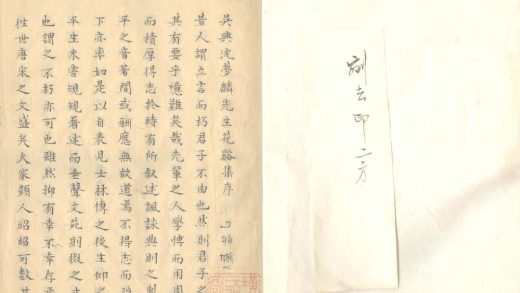 吳興沈夢麟先生花谿集序
昔人謂立言而朽君子不由也然則君子之
其有要乎噫難矣哉先輩之人學博而用周
而積厚得志於時有所叙述諷詠典則之製
平之音著間或酬應無故道焉不得志而
下亦率如是以自表見士林傳之後生仰之
平生未嘗規規著述而垂聲文苑則擬之
也謂之不朽亦可也雖然抑有幸不幸存焉
徃世唐宋之文盛矣大家顯人昭昭可數其
刓去印二方